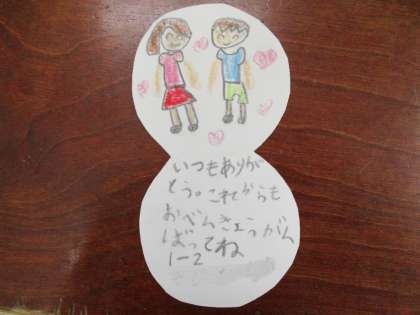 いつもありが
とう。これからも
おべんきょうがん
ばってね
1-2